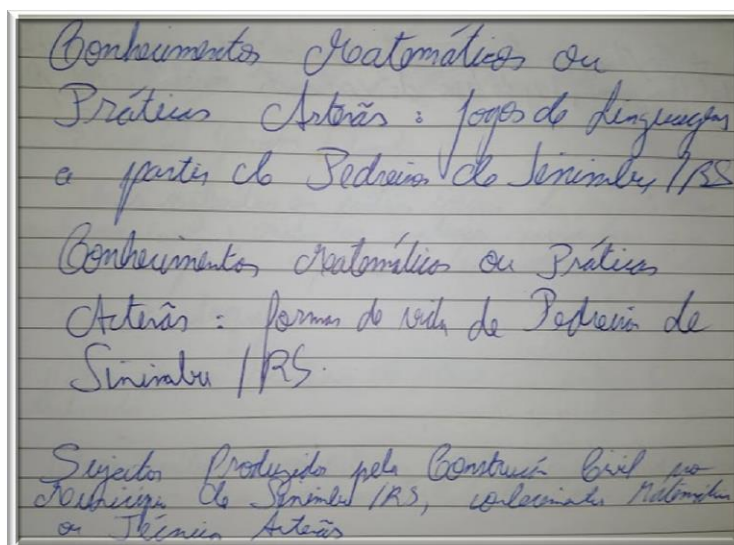 Conhecimentos Matemáticos ou
Práticas Artesãs : jogos de linguagem
a partir de Pedreiros de Sinimbu / RS
Conhecimentos Matemáticos ou Práticas
Artesãs : formas de vida de Pedreiros de
Sinimbu / RS.
Sujeitos Produzidos pela Construção Civil no
Município de Sinimbu / RS, conhecimentos Matemáticos
ou Técnicas Artesãs